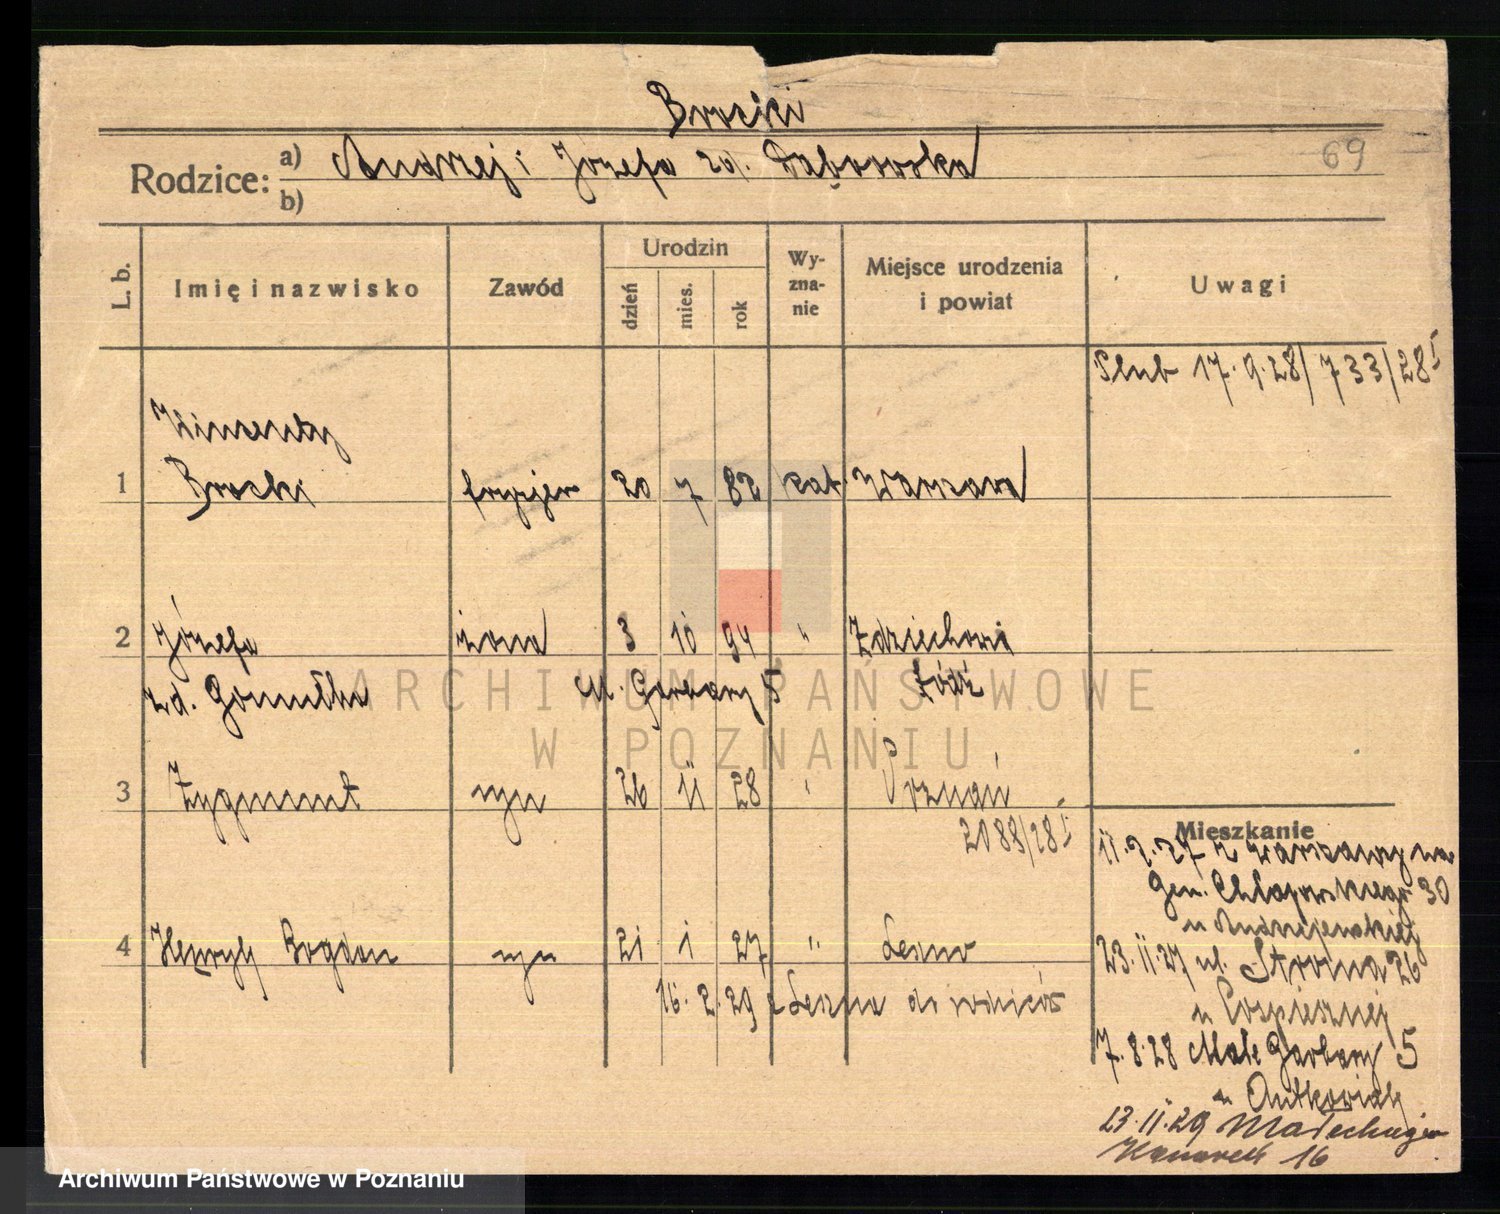 Brocki
69
Rodzice: a) Andrzej i Józefa zd. Dąbrowska
b)
L. b. Imię i nazwisko Zawód Urodzin dzień mies. rok Wy-zna-nie Miejsce urodzenia i powiat Uwagi
Ślub 17.9.28/733/28 I
Wincenty
1 Brocki fryzjer 20 7 82 kat. Warszawa
2 Józefa żona 3 10 94 " Zdziechowi
zd. Gomułka M. Garbary 5 Łódź
3 Zygmunt syn 26 11 28 " Poznań
2088/28 I
Mieszkanie
11.2.27 z Warszawy na
Gen. Chłapowskiego 30
u Andrzejewskiej
4 Henryk Bogdan syn 21 1 27 " Leszno
23.11.27 ul. Strome 26
16.2.29 z Leszna do rodziców
u Pospiesznej
7.8.28 Małe Garbary 5
u Antkowiak
23.11.29
16
ARCHIWUM PAŃSTWOWE
W POZNANIU
Archiwum Państwowe w Poznaniu